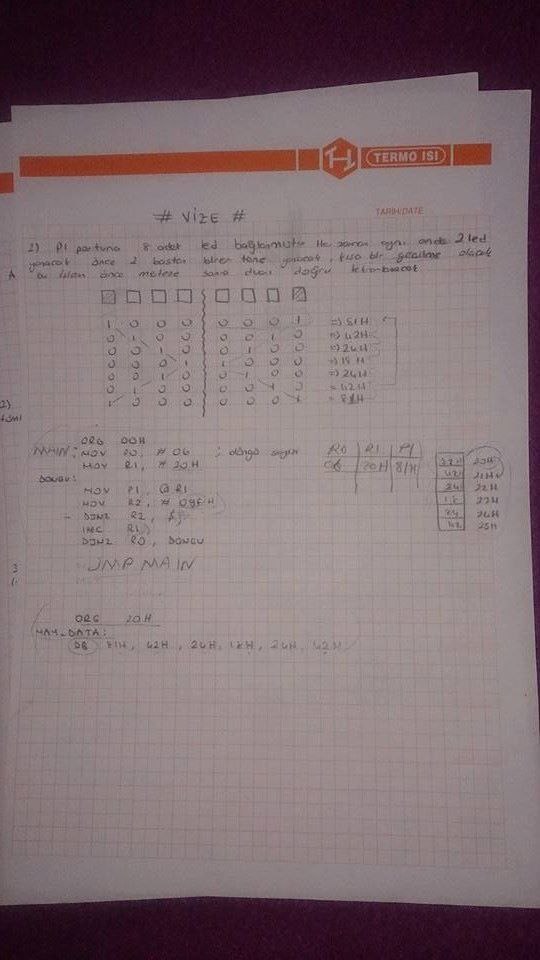 TERMO ISI
TARİH/DATE
# VİZE #
2) P1 portuna 8 adet led bağlanmıştır. Her zaman aynı anda 2 led
yanacak önce 2 baştan birer tane yanacak, kısa bir gecikme olacak
önce sonra doğru
1 0 0 0 0 0 0 1 => 81H
0 1 0 0 0 0 1 0 => 42H
0 0 1 0 0 1 0 0 => 24H
0 0 0 1 1 0 0 0 => 18H
0 0 1 0 0 1 0 0 => 24H
0 1 0 0 0 0 1 0 = 42H
1 0 0 0 0 0 0 1 = 81H
ORG 00H
MAIN: MOV R0, # 06 ; döngü sayısı
MOV R1, # 20H
DONGU:
MOV P1, @R1
MOV R2, # 0FFH
DJNZ R2, $
INC R1
DJNZ R0, DONGU
JMP MAIN
R0 R1 P1
06 20H 81H
20H
42 21H
24 22H
18 23H
24 24H
42 25H
ORG 20H
DATA:
DB 81H, 42H, 24H, 18H, 24H, 42H